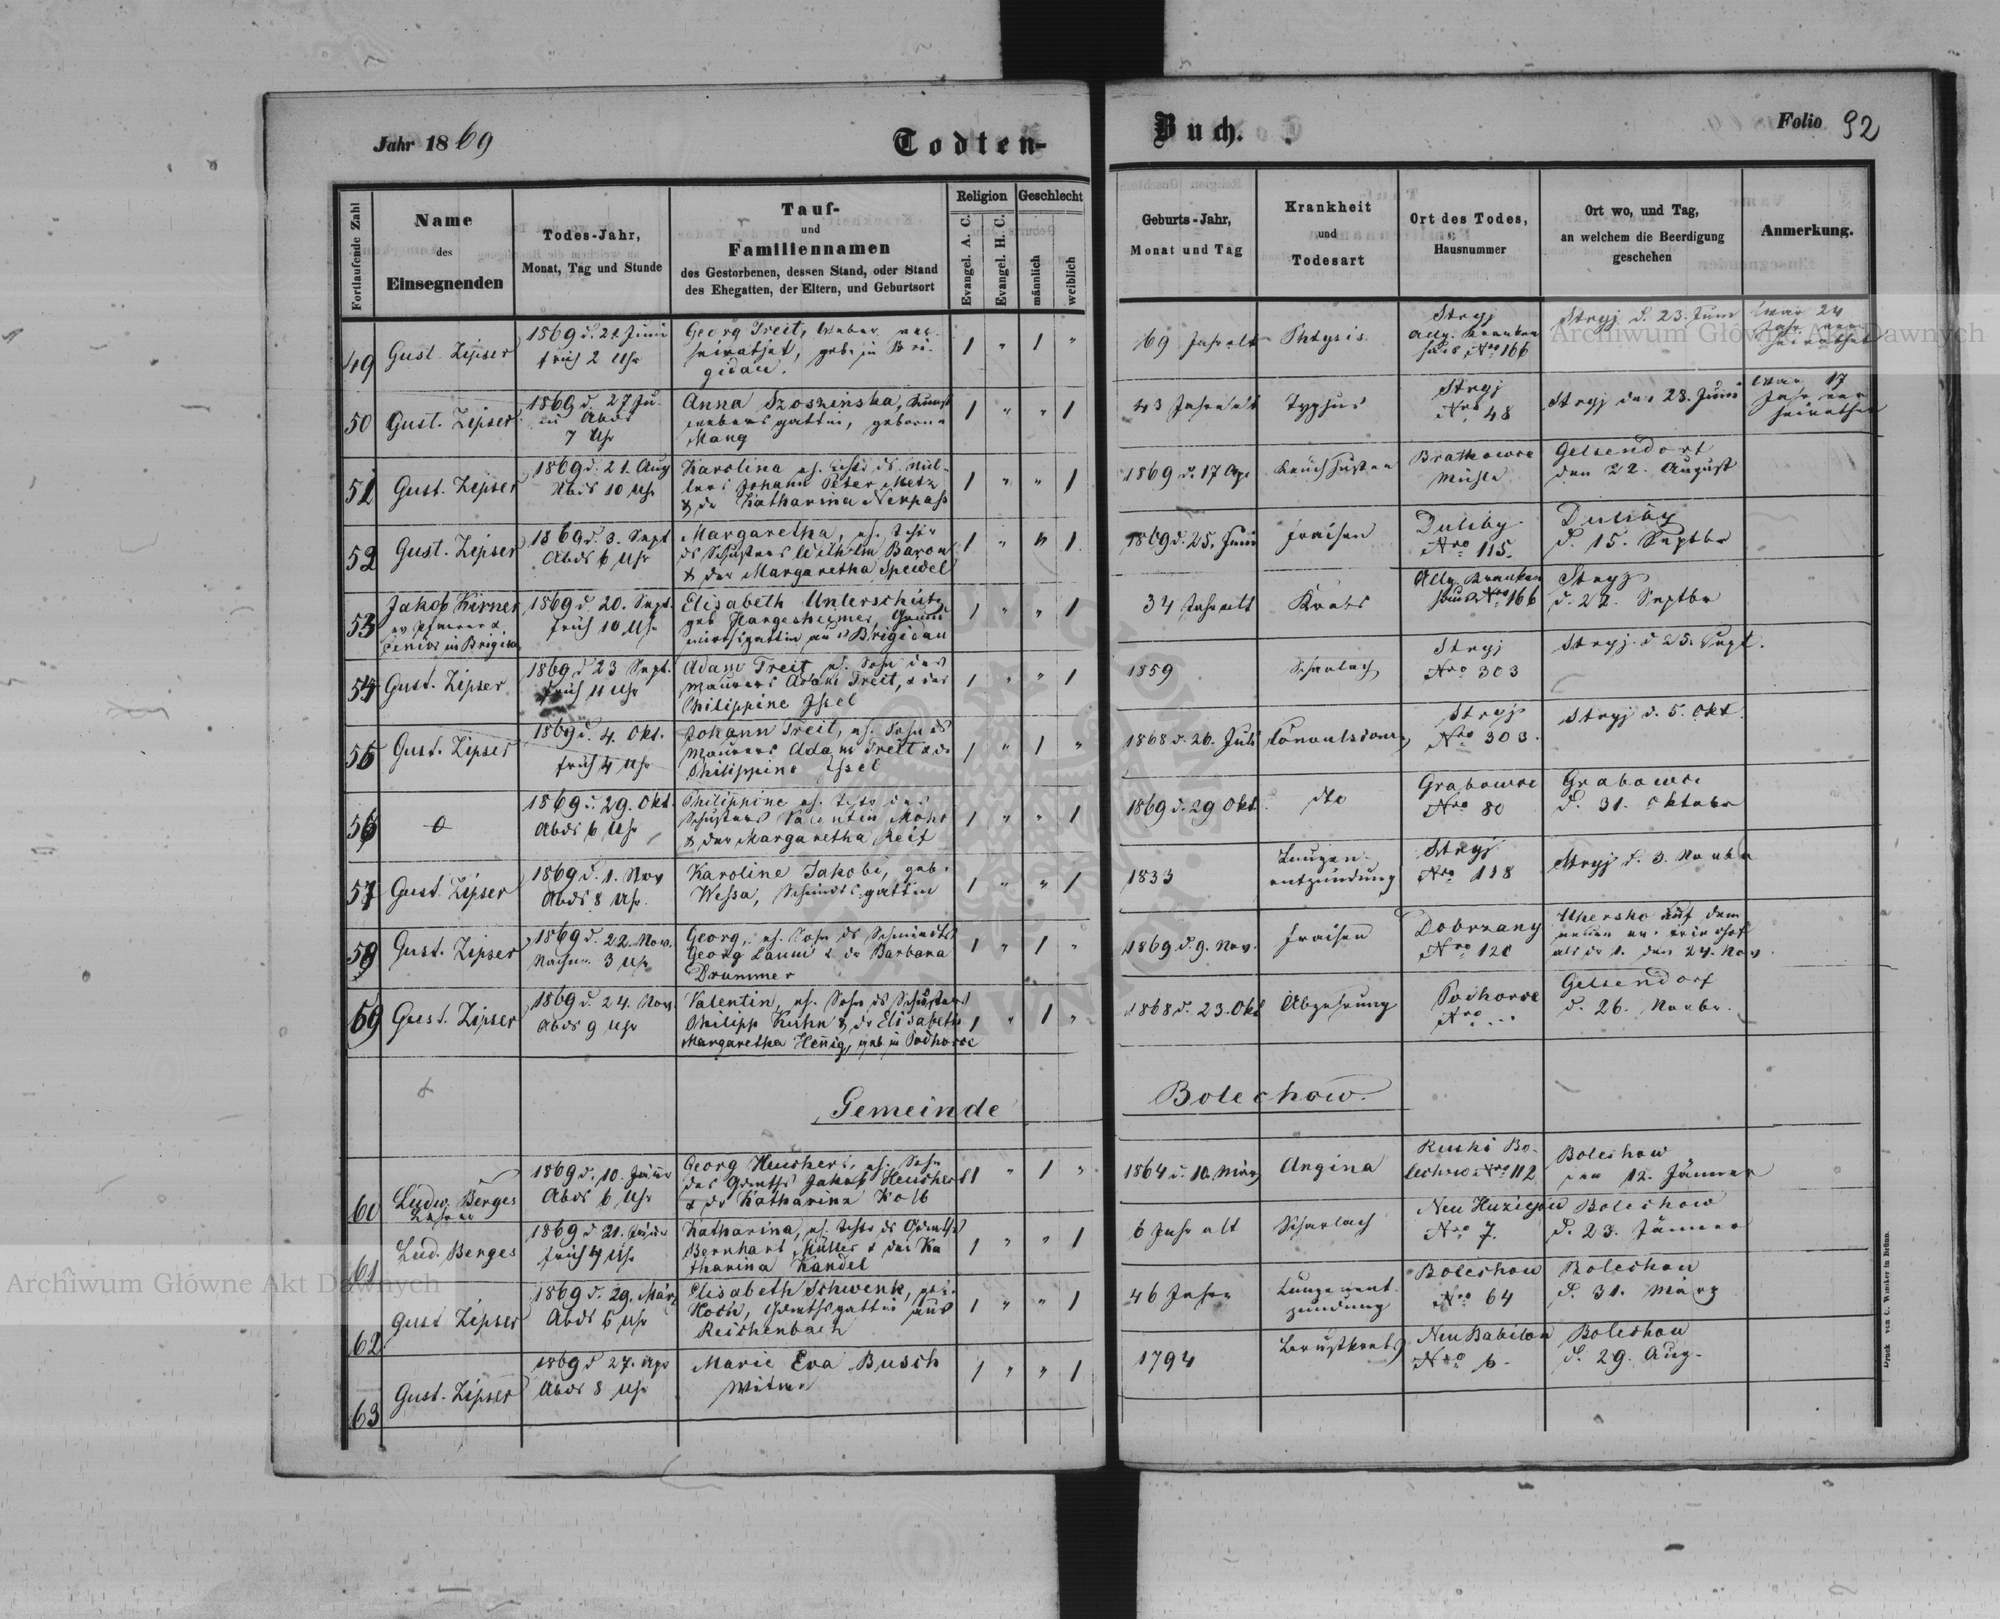 Jahr 1869
Todten-
Buch.
Folio 92
Fortlaufende Zahl
Name
des
Einsegnenden
Todes-Jahr,
Monat, Tag und Stunde
Tauf-
und
Familiennamen
des Gestorbenen, dessen Stand, oder Stand
des Ehegatten, der Eltern, und Geburtsort
Religion
Evangel. A. C.
Evangel. H. C.
Geschlecht
männlich
weiblich
Geburts-Jahr,
Monat und Tag
Krankheit
und
Todesart
Ort des Todes,
Hausnummer
Ort wo, und Tag,
an welchem die Beerdigung
geschehen
Anmerkung.
49
Gust. Zipser
früh 2 Uhr
Georg Treit, Weber, ver-
heirathet, geb. in Bri-
gidau.
1 " 1 "
69 Jahr alt
Phtysis
Stryj
Allg. Kranken
haus Nro 166
Stryj d. 23. Juni
War 24
Jahr ver-
heirathet
50
Gust. Zipser
1869 d. 27 Ju-
ni Abds
7 Uhr
Anna Szoszinska, Kunst
webersgattin, geborne
Mang
1 " " 1
43 Jahr alt
Typhus
Stryj
Nro 48
Stryj den 28. Juni
War 17
Jahr ver-
heirathet
51
Gust. Zipser
1869 d. 21. Aug
Abds 10 Uhr
Karolina eh. Tocht. ds. Mül-
lers Johann Peter Metz
& der Katharina Nerpass
1 " " 1
1869 d. 17 Apr
Keuchhusten
Bratkowce
Mühle
Gelsendorf
den 22. August
52
Gust. Zipser
1869 d. 3. Sept
Abds 6 Uhr
Margaretha, eh. Tochter
ds Schusters Wilhelm Baron
& der Margaretha Speidel
1 " " 1
1869 d. 25. Juni
Fraisen
Duliby
Nro 115.
Duliby
d. 15. Septbr
53
Jakob Kirner
ev. Pfarrer &
Senior in Brigidau
1869 d. 20. Sept.
früh 10 Uhr
Elisabeth Unterschütz
geb. Hargesheimer, Grund
wirthsgattin aus Brigidau
1 " " 1
34 Jahr alt
Krebs
Allg. Kranken
haus Nro 166
Stryj
d. 22. Septbr
54
Gust. Zipser
1869 d 23 Sept.
früh 11 Uhr
Adam Treit, eh. Sohn des
Maurers Adam Treit, & der
Philippine Issel
1 " " 1
1859
Scharlach
Stryj
Nro 303
Stryj d 25. Sept.
55
Gust. Zipser
1869 d. 4. Okt.
früh 4 Uhr
Johann Treit, eh. Sohn ds
Maurers Adam Treit & der
Philippine Issel
1 " 1 "
1868 d. 26. Juli
Convulsionen
Stryj
Nro 303.
Stryj d. 5. Okt.
56
1869 d. 29. Okt.
Abds 6 Uhr
Philippine eh. Tocht. des
Schusters Valentin Mohr
& der Margaretha Reif
1 " " 1
1869 d. 29 Okt.
dto
Grabowce
Nro 80
Grabowce
d. 31. Oktober
57
Gust. Zipser
1869 d. 1. Nov
Abds 8 Uhr
Karoline Jakobi, geb.
Wessa, Schmidsgattin
1 " " 1
1833
Lungen-
entzündung
Stryj
Nro 118
Stryj d. 3. Novbr
58
Gust. Zipser
1869 d. 22. Nov.
Nachm. 3 Uhr
Georg, eh. Sohn ds Schmiedts
Georg Laum & der Barbara
Drummer
1 " 1 "
1869 d. 9. Nov.
Fraisen
Dobrzany
Nro 120
Uhersko auf dem
neuen ev. Friedhof
als der 1. den 24. Nov.
59
Gust. Zipser
1869 d. 24. Nov.
Abds 9 Uhr
Valentin, eh. Sohn ds Schusters
Philipp Kuhn & der Elisabeth
Margaretha Hennig, geb in Podhorce
1 " 1 "
1868 d. 23. Okt
Abzehrung
Podhorce
Nro ...
Gelsendorf
d. 26. Novbr.
Gemeinde
Bolechow.
60
Ludw. Berges
Lehrer
1869 d. 10. Jänner
Abds 6 Uhr
Georg Heuchert, eh. Sohn
des Grwths Jakob Heuchert
& der Katharina Kolb
1 " 1 "
1864 d. 10. März
Angina
Ruski Bo-
lechow Nro 112
Bolechow
den 12. Jänner
61
Lud. Berges
1869 d 21. Jänner
früh 4 Uhr
Katharina, eh. Tocht. ds Grwths
Bernhart Müller & der Ka
tharina Kandel
1 " " 1
6 Jahr alt
Scharlach
Nro 7.
Bolechow
d. 23. Jänner
62
Gust Zipser
1869 d. 29. März
Abds 5 Uhr
Elisabeth Schwenk, geb.
Koch, Grwthsgattin aus
Reichenbach
1 " " 1
46 Jahr
Lungenent-
zündung
Bolechow
Nro 64
Bolechow
d. 31. März
63
Gust. Zipser
1869 d 27. Apr
Abds 8 Uhr
Marie Eva Busch
Witwe
1 " " 1
1794
Brustkrebs
Neu Babilon
Nro 6.
Bolechow
d. 29. Aug.
Druck von C. Winiker in Brünn.
Archiwum Główne Akt Dawnych
Archiwum Główne Akt Dawnych